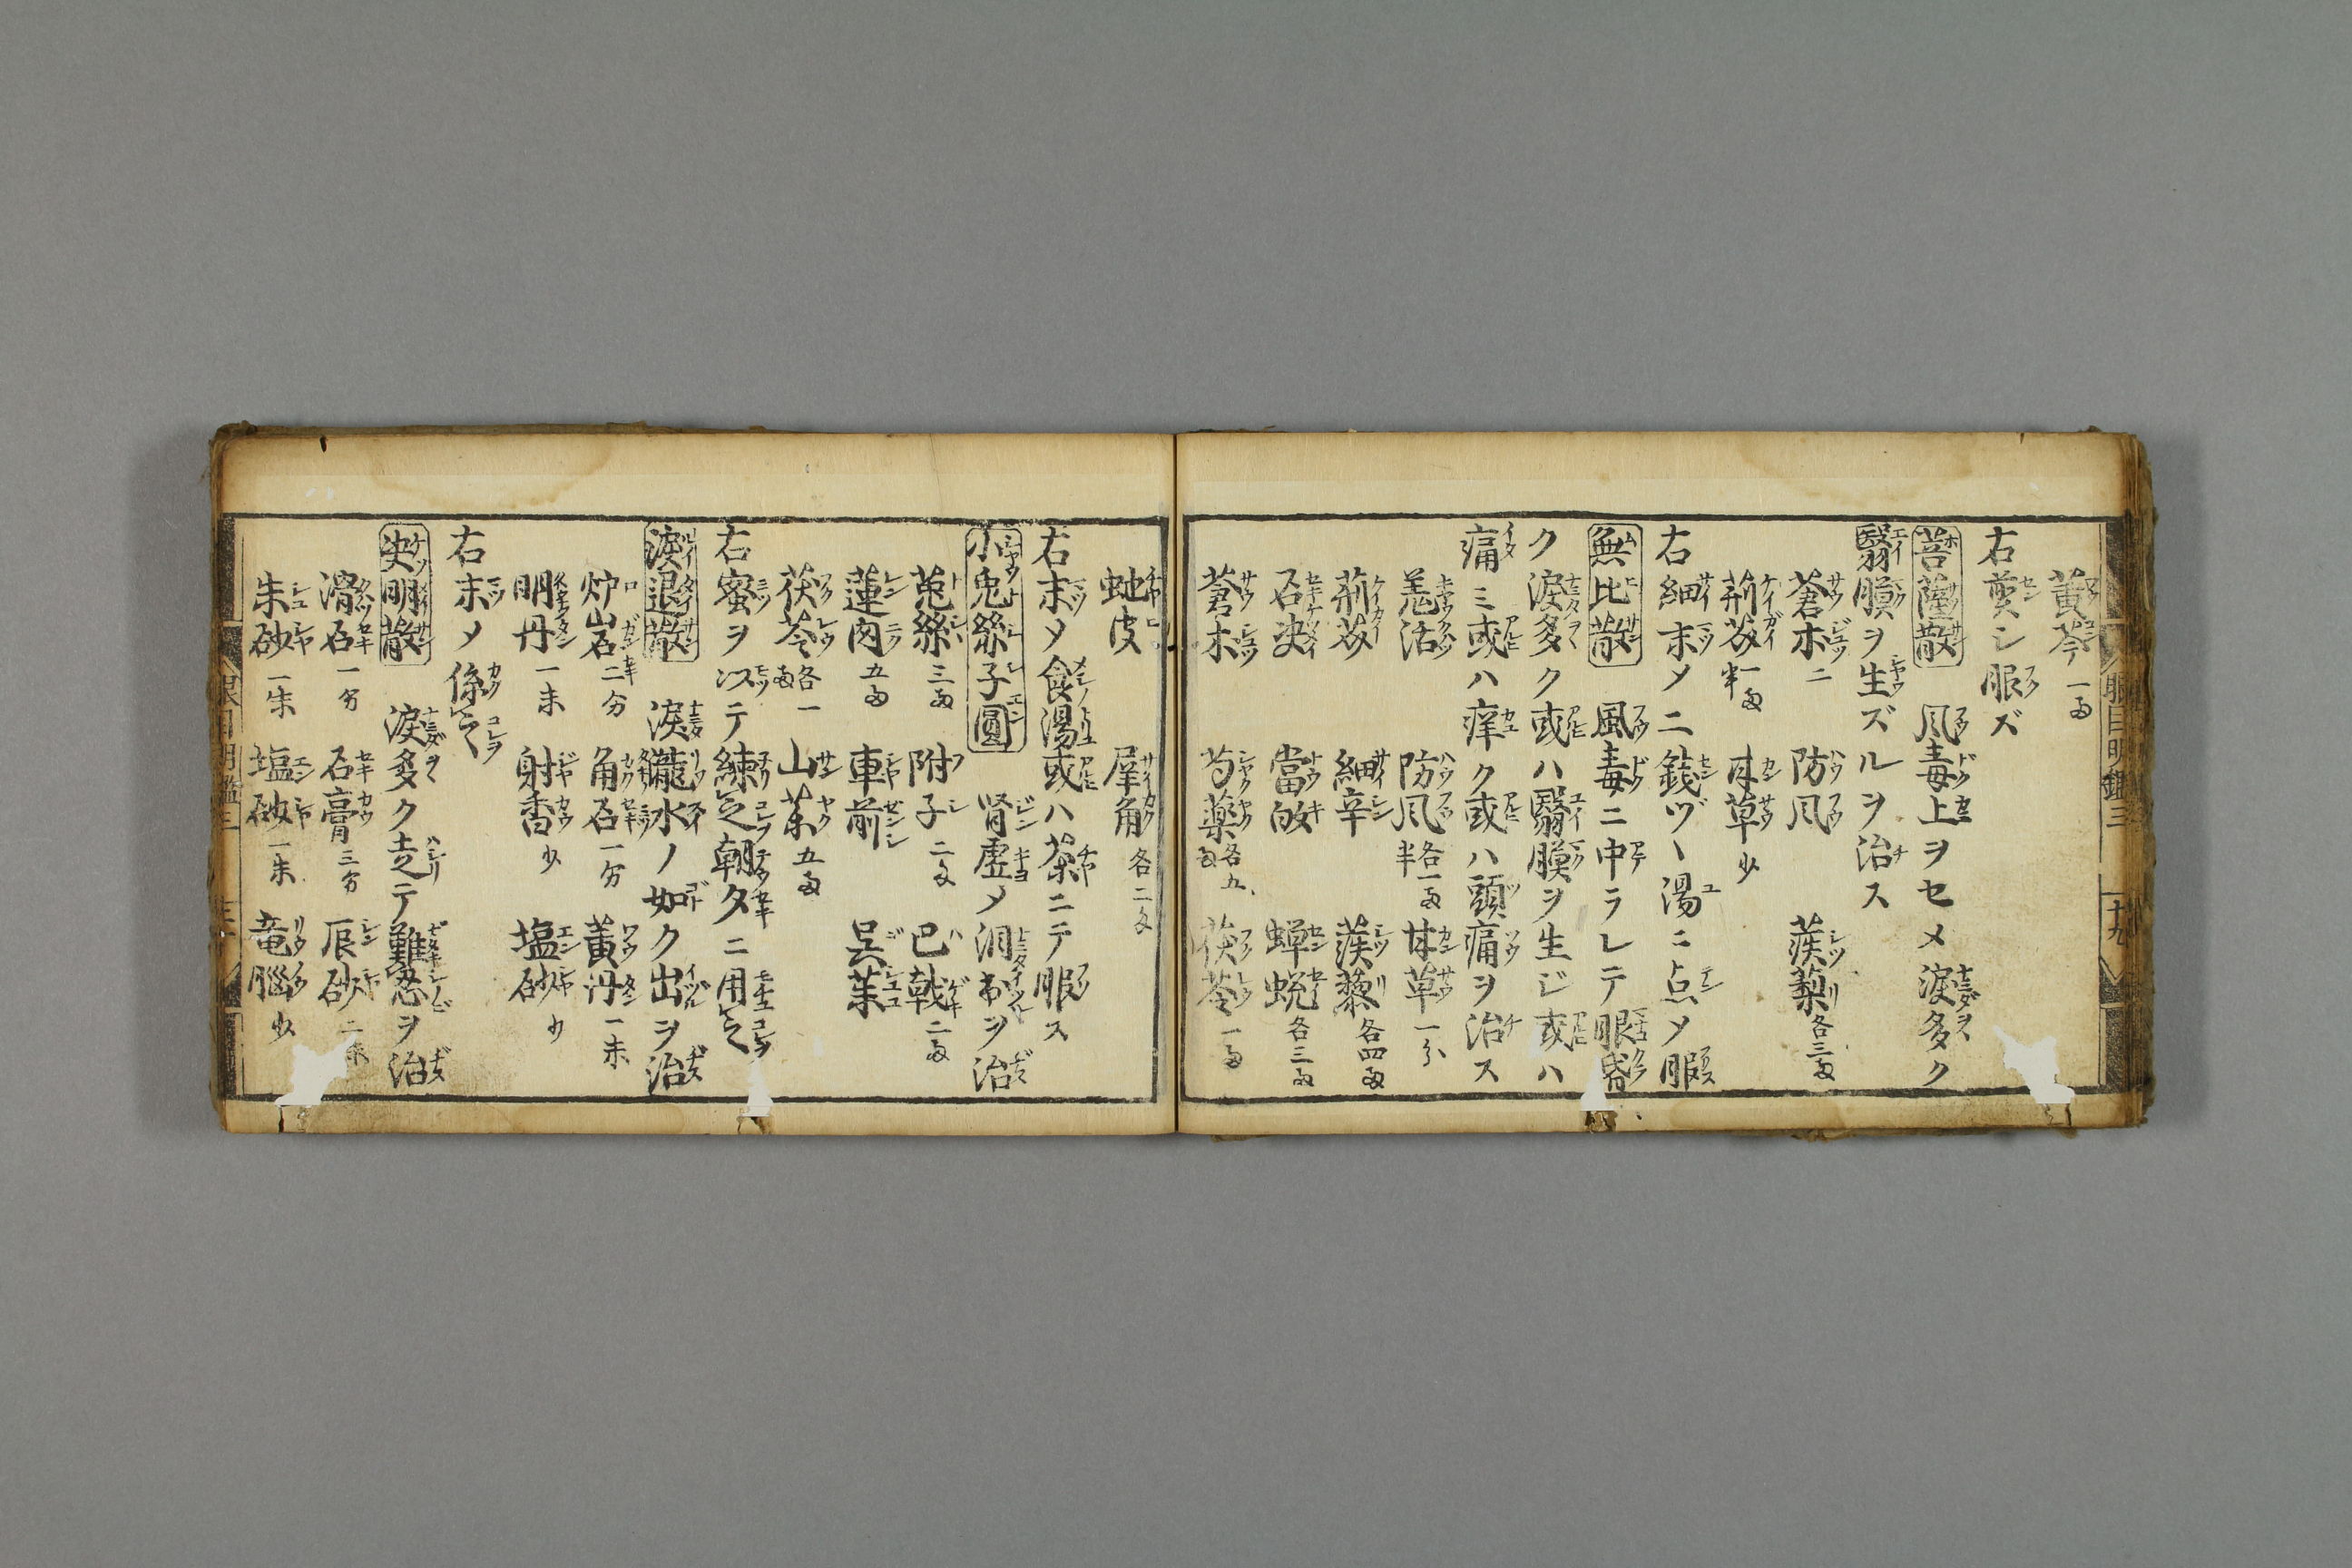 眼目明鑑三 十九
黄芩一両
右煎シ服ズ
菩薩散 風毒上ヲセメ涙多ク
翳膜ヲ生ズルヲ治ス
蒼朮二 防風 蒺蔾各三両
荊芥一両半 甘草少
右細末メ二銭ヅヽ湯ニ点メ服
無比散 風毒ニ中ラレテ眼昏
ク涙多ク或ハ翳膜ヲ生ジ或ハ
痛ミ或ハ痒ク或ハ頭痛ヲ治ス
羗活 防風各一両半 甘草一分
荊芥 細辛 蒺藜各四両
石决 當皈 蝉蛻各三両
蒼朮 芍薬各五両 茯苓一両
虵皮 犀角各二匁
右末メ食湯或ハ茶ニテ服ス
小兎絲子圓 腎虚メ洞ヲ治
菟絲三両 附子二匁 巴戟二両
蓮肉五両 車前 呉茱
茯苓各一両 山茱五両
右蜜ヲ以テ練之朝夕ニ用之
涙退散 涙瀧水ノ如ク出ヲ治
炉岩二分 角石一分 黄丹一朱
明丹一朱 射香少 塩砂少
右末メ係之
决明散 涙多ク走テ難忍ヲ治
滑石一分 石膏三分 辰砂二朱
朱砂一朱 塩砂一朱 竜腦少
眼目明鑑三